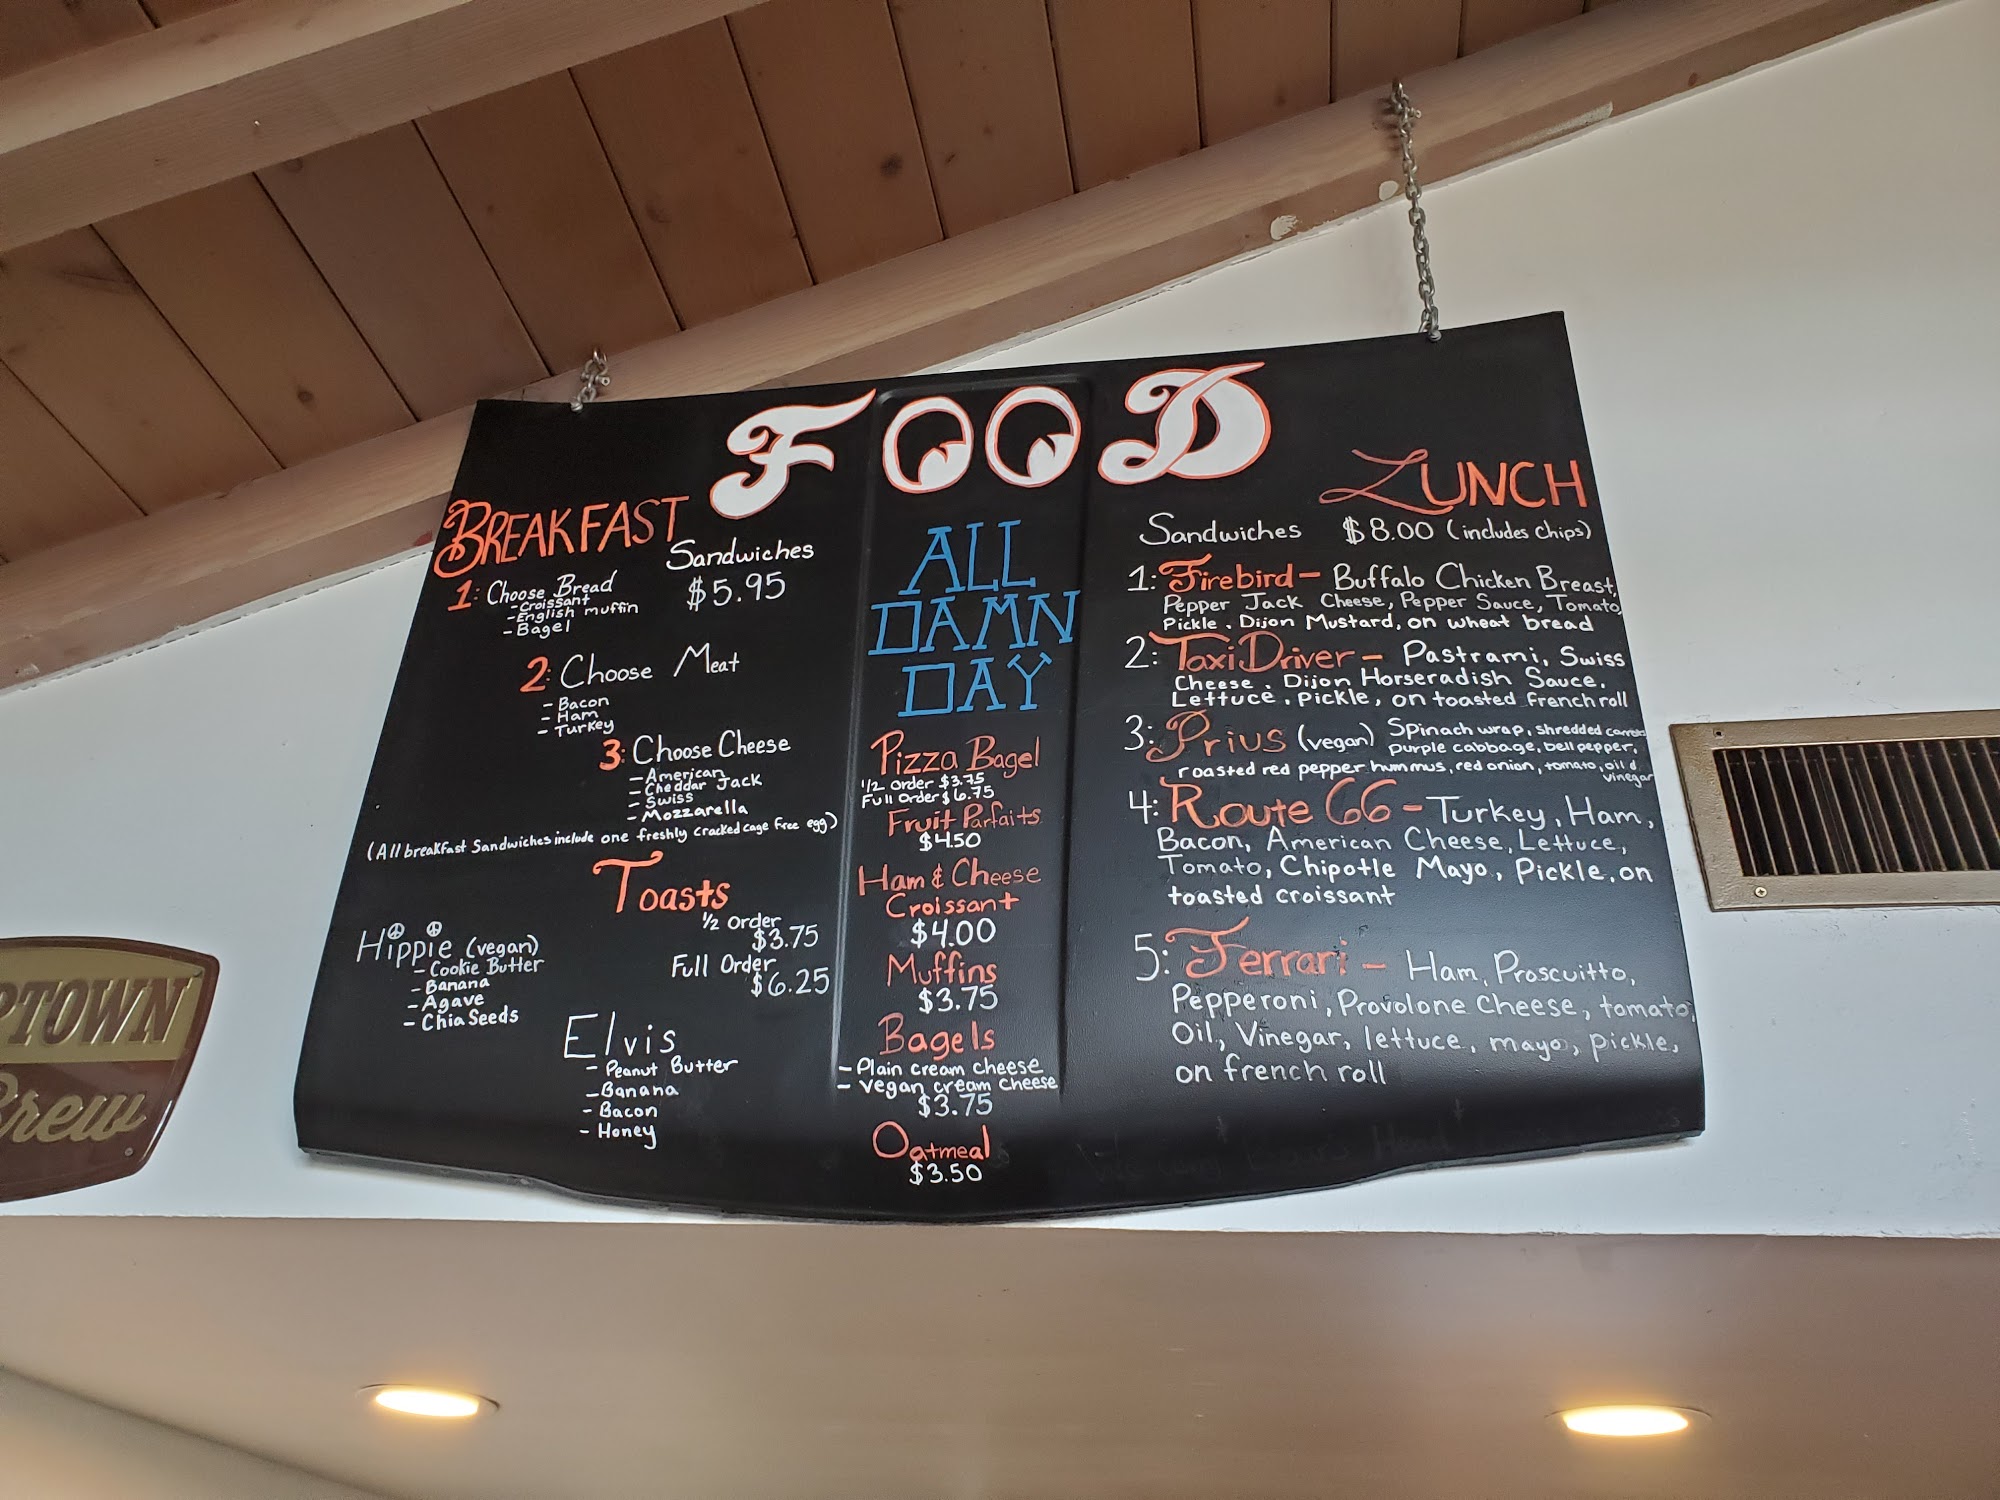 FOOD
BREAKFAST
Sandwiches
$5.95
1: Choose Bread
- Croissant
- English muffin
- Bagel
2: Choose Meat
- Bacon
- Ham
- Turkey
3: Choose Cheese
- American
- Cheddar Jack
- Swiss
- Mozzarella
(All breakfast Sandwiches include one freshly cracked cage free egg)
Toasts
1/2 Order
$3.75
Full Order
$6.25
Hippie (vegan)
- Cookie Butter
- Banana
- Agave
- Chia Seeds
Elvis
- Peanut Butter
- Banana
- Bacon
- Honey
ALL
DAMN
DAY
Pizza Bagel
1/2 Order $3.75
Full Order $6.75
Fruit Parfaits
$4.50
Ham & Cheese
Croissant
$4.00
Muffins
$3.75
Bagels
- Plain cream cheese
- Vegan cream cheese
$3.75
Oatmeal
$3.50
LUNCH
Sandwiches $8.00 (includes chips)
1: Firebird - Buffalo Chicken Breast,
Pepper Jack Cheese, Pepper Sauce, Tomato,
Pickle, Dijon Mustard, on wheat bread
2: Taxi Driver - Pastrami, Swiss
Cheese, Dijon Horseradish Sauce,
Lettuce, Pickle, on toasted french roll
3: Prius (vegan) Spinach wrap, shredded carrots
purple cabbage, bell pepper,
roasted red pepper hummus, red onion, tomato, oil &
vinegar
4: Route 66 - Turkey, Ham,
Bacon, American Cheese, Lettuce,
Tomato, Chipotle Mayo, Pickle, on
toasted croissant
5: Ferrari - Ham, Proscuitto,
Pepperoni, Provolone Cheese, tomato,
Oil, Vinegar, lettuce, mayo, pickle,
on french roll
PTOWN
Brew